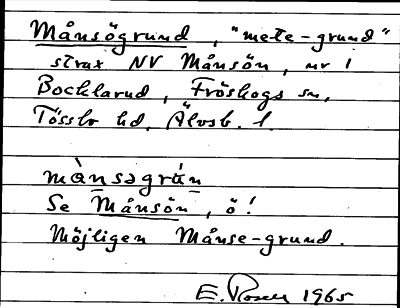 Månsögrund, "mete-grund"
strax NV Månsön, nr 1
Bocklarud, Fröskogs sn,
Tössbo hd, Älvsb. l.
mànsəgrún
Se Månsön, ö!
Möjligen Månse-grund.
E. 1965